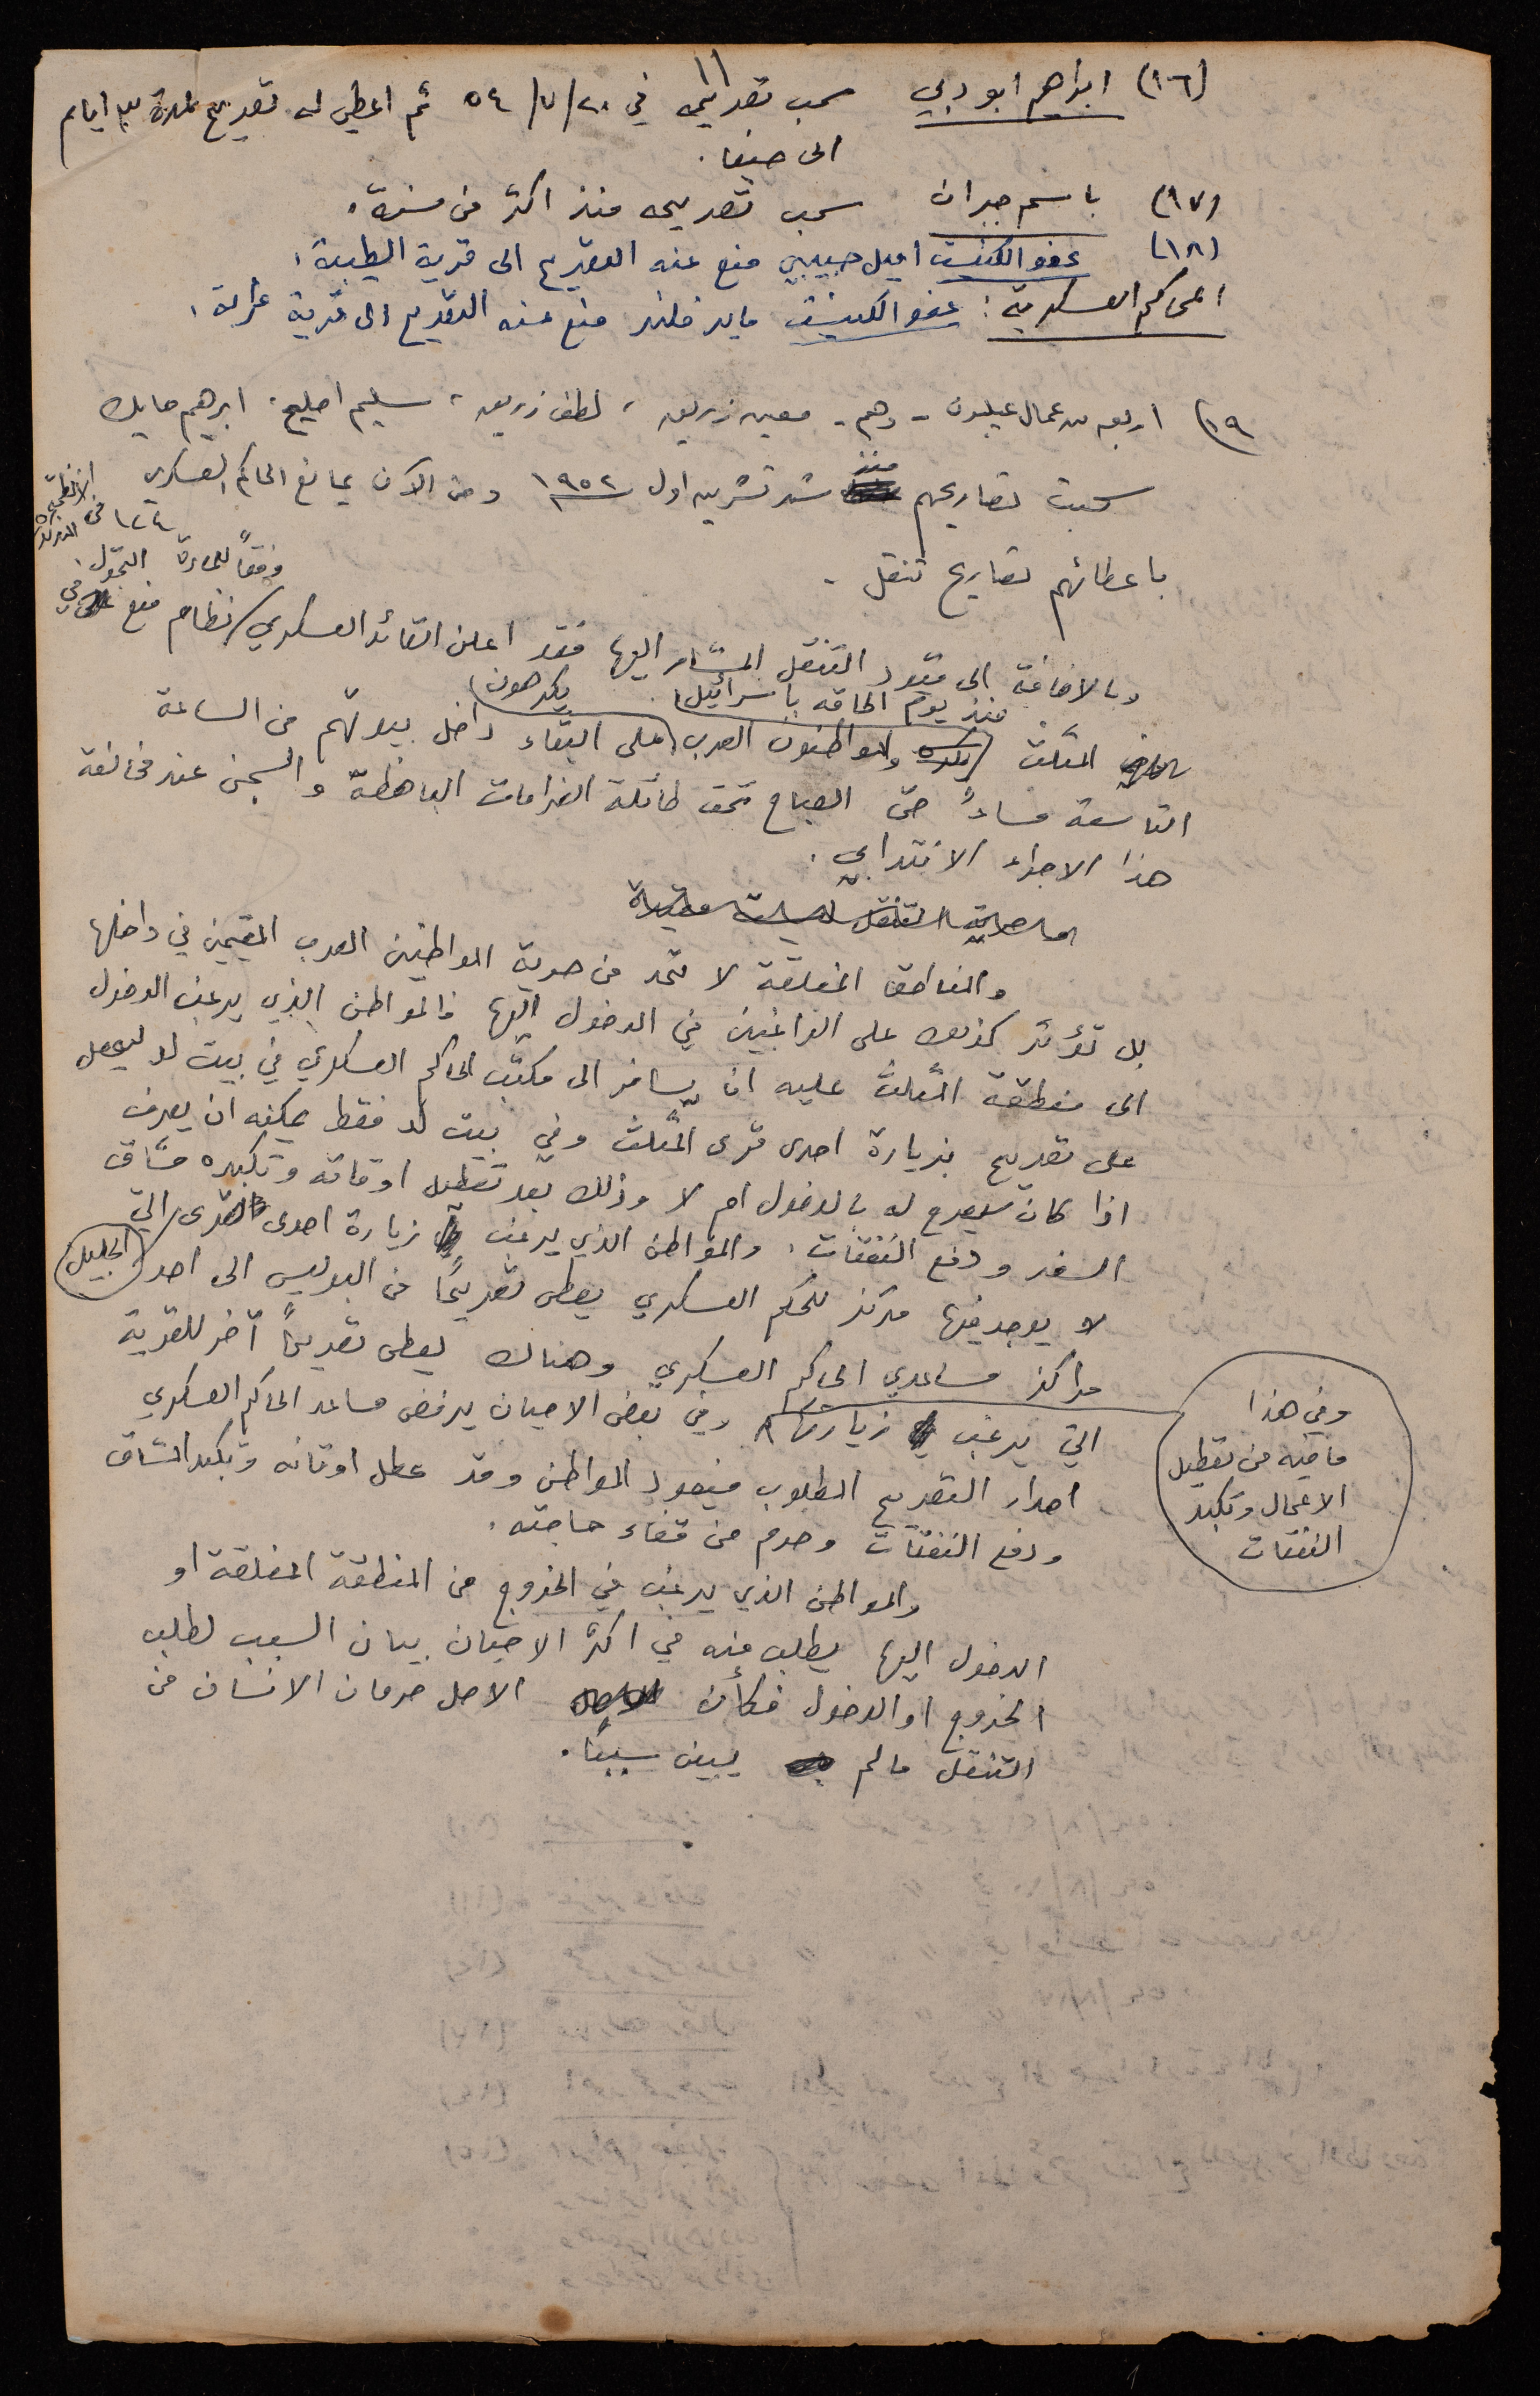 ١١
(١٦) ابراهيم ابو دبي سحب تصريحه في ٢٠/٧/٥٤ ثم اعطي له تصريح لمدة ٣ ايام
الى حيفا.
(١٧) باسم جبران سحب تصريحه منذ اكثر من سنة.
(١٨) عضو الكنيست اميل حبيبي منع عنه التصريح الى قرية الطيبة.
المحاكم العسكرية: عضو الكنيست ماير فلنر منع عنه التصريح الى قرية عرابة.
(١٩ اربعة من عمال عيلبون - وهم - معين زريق، لطف زريق، سليم اصليح. ابرهيم حايك
سحبت تصاريحهم منذ شهر تشرين اول ١٩٥٢ ومن الآن يمانع الحاكم العسكري
باعطائهم تصاريح تنقل -
وفقاً للمادة ١٢٤ من الانظمة
وبالاضافة الى قيود التنقل المشار اليها فقد اعلن القائد العسكري نظام منع التجول في
منذ يوم الحاقه باسرائيل يكرهون
المثلث والمواطنون العرب على البقاء داخل بيوتهم من الساعة
التاسعة مساءً حتى الصباح تحت طائلة الغرامات الباهظة والسجن عند مخالفة
هذا الاجراء الانتدابي.
والمناطق المغلقة لا تحد من حرية المواطنين العرب المقيمين في داخلها
بل تؤثر كذلك على الراغبين في الدخول اليها فالمواطن الذي يرغب الدخول
الى منطقة المثلث عليه ان يسافر الى مكتب الحاكم العسكري في بيت لد ليحصل
على تصريح بزيارة احدى قرى المثلث وفي بيت لد فقط يمكنه ان يعرف
اذا كان سيصرح له بالدخول ام لا وذلك بعد تعطيل اوقاته وتكبده مشاق
السفر ودفع النفقات. والمواطن الذي يرغب زيارة احدى قرى الجليل التي
لا يوجد فيها مركز للحكم العسكري يعطى تصريحًا من البوليس الى احد
مراكز مساعدي الحاكم العسكري وهناك يعطى تصريحاً آخر للقرية
التي يرغب زيارتها وفي بعض الاحيان يرفض مساعد الحاكم العسكري
وفي هذا
ما فيه من تعطيل
الاعمال وتكبد
النفقات
اصدار التصريح المطلوب فيعود المواطن وقد عطل اوقاته وتكبد المشاق
ودفع النفقات وحرم من قضاء حاجته.
والمواطن الذي يرغب في الخروج من المنطقة المغلقة او
الدخول اليها يطلب منه في اكثر الاحيان بيان السبب لطلب
الخروج او الدخول فكأن الاصل حرمان الانسان من
التنقل مالم يبين سببًا.